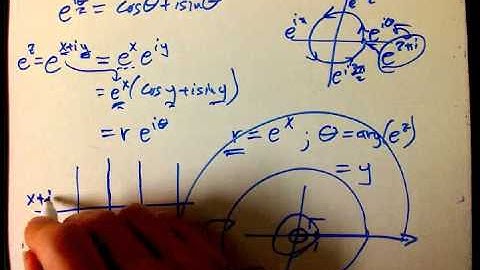 e^{iθ} = cosθ + i sinθ
e^z = e^{x+iy} = e^x e^{iy}
= e^x (cos y + i sin y)
= r e^{iθ}
r = e^x ; θ = arg(e^z)
= y
x+i
e^{iπ}
e^{i0}
e^{2πi}